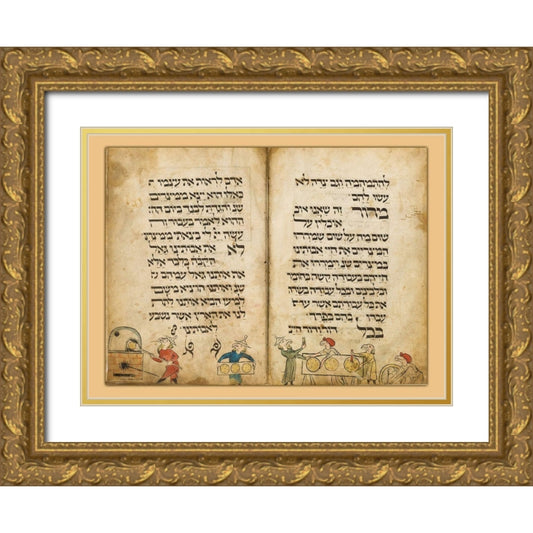 להתמהמה וגם צדה לא
עשו להם
מרור זה שאנו אוכ
אוכלין על
שום מה על שום שמררו
המצריים את חיי אבותינו
במצרים וימררו את
חייהם בעבודה קשה בחומר
ובלבנים ובכל עבודה בשדה
את כל עבודתם אשר עבדו
בהם בפרך
בכל דור ודור
אדם לראות את עצמו כ
כאלו הוא יצא ממצרים
והגדת לבנך ביום
ההוא לאמר בעבור זה
עשה לי בצאתי ממצרים
לא את אבותינו גאל
הקדוש אלא
אותנו גאל עמהם
ואותנו הוציא משם למען
הביא אותנו לתת
לנו את הארץ אשר נשבע
לאבותינו